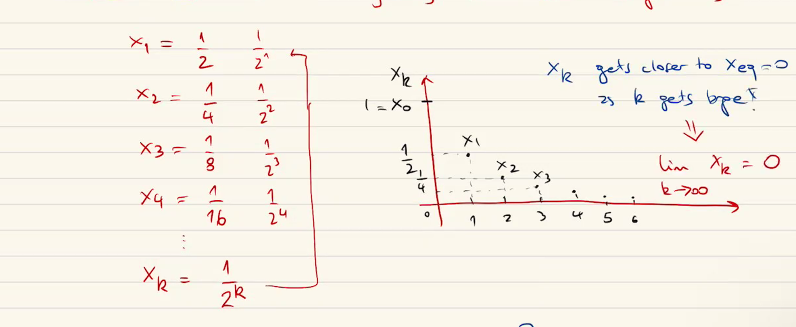 x₁ = 1/2 1/2¹
x₂ = 1/4 1/2²
x₃ = 1/8 1/2³
x₄ = 1/16 1/2⁴
⋮
x_k = 1/2^k
x_k
1 = x₀
1/2
1/4
0
x₁
x₂
x₃
1 2 3 4 5 6
x_k gets closer to x_eq = 0
as k gets
⇓
lim x_k = 0
k→∞